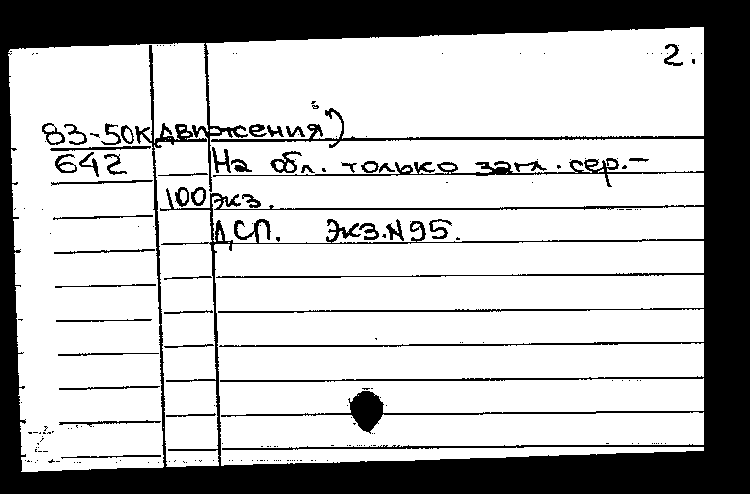 2.
83-50К движения")
642 На обл. только загл. сер.–
100 экз.
ДСП. Экз.N95.